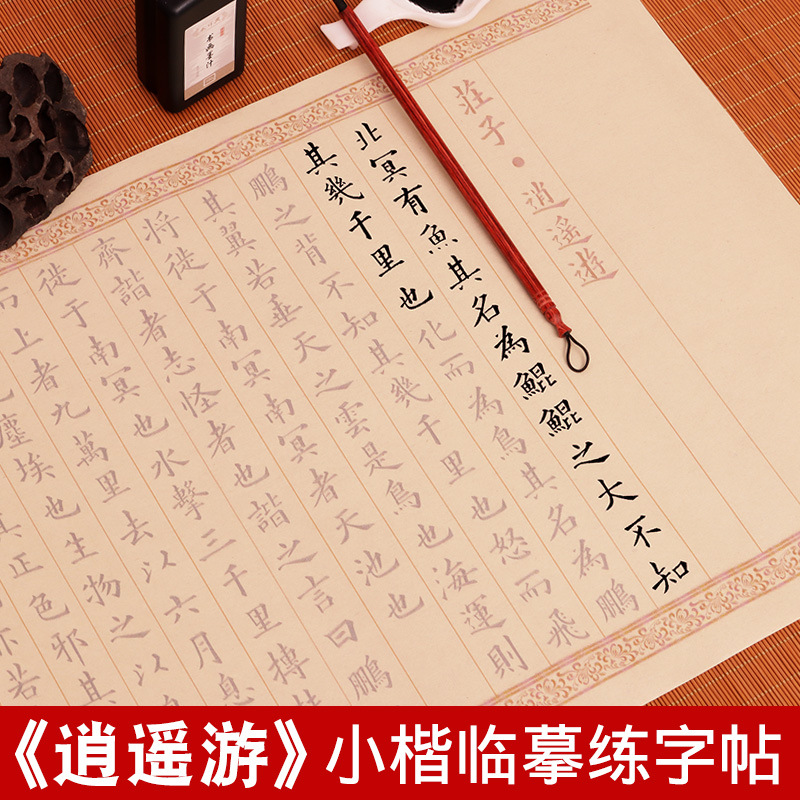 书画墨汁
莊子·逍遥遊
北冥有魚其名為鯤鯤之大不知
其幾千里也化而為鳥其名為鵬
鵬之背不知其幾千里也怒而飛
其翼若垂天之雲是鳥也海運則
将徙于南冥南冥者天池也
齊諧者志怪者也諧之言曰鵬
徙于南冥也水擊三千里摶
上者九萬里去以六月息
塵埃也生物之以
其正色邪其
亦若
《逍遥游》小楷临摹练字帖